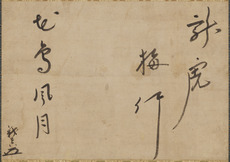 龍虎
梅竹
花鳥風月